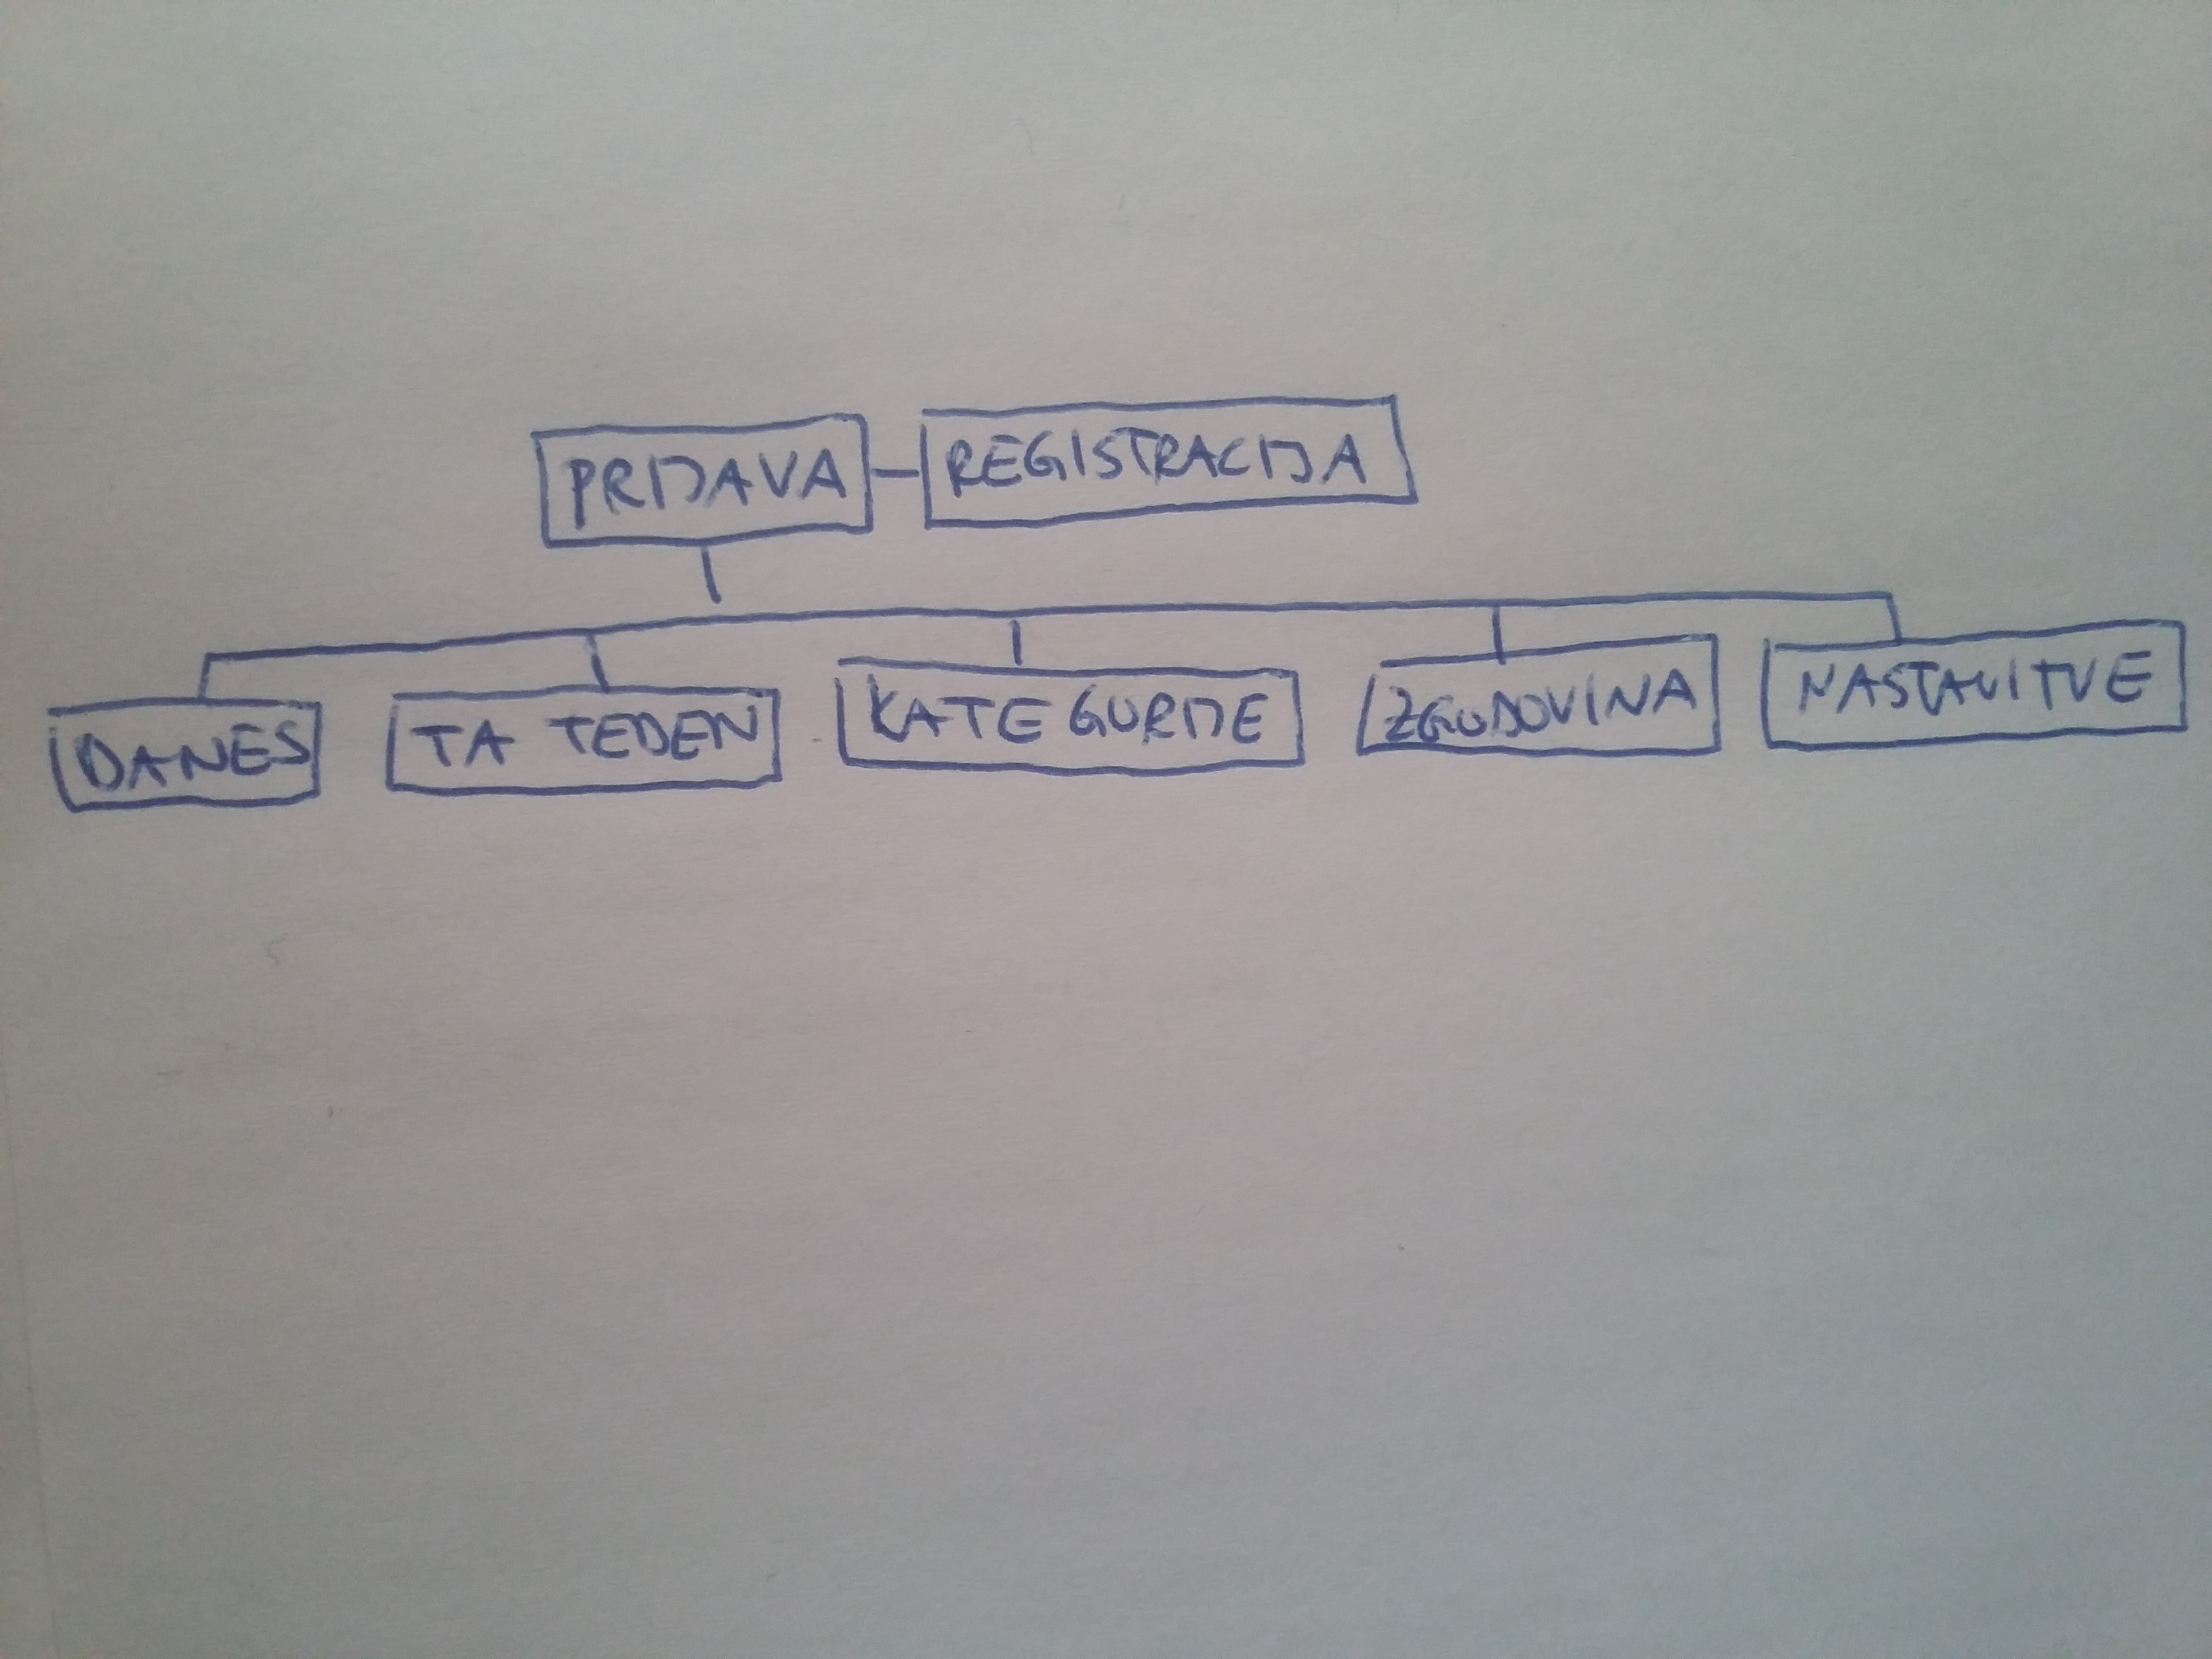 PRIJAVA REGISTRACIJA
DANES TA TEDEN KATEGORIJE ZGODOVINA NASTAVITVE